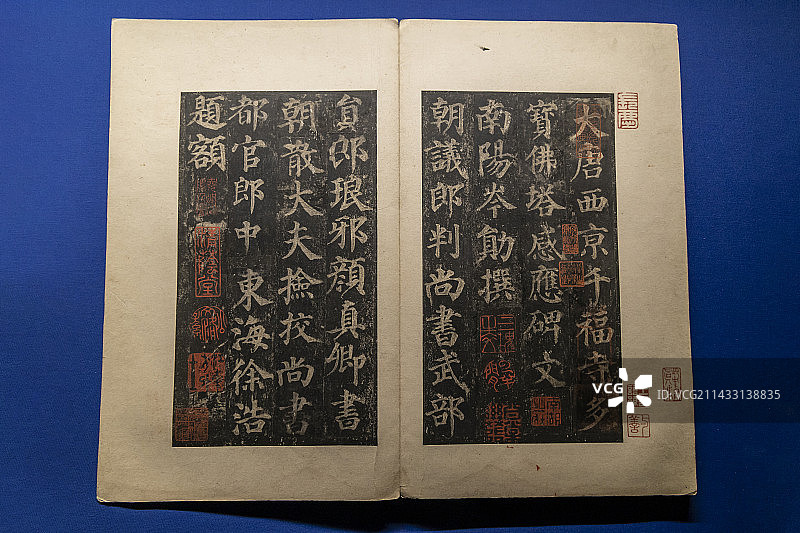 大唐西京千福寺多
寶佛塔感應碑文
南陽岑勛撰
朝議郎判尚書武部
貟郎琅邪顏真卿書
朝散大夫撿挍尚書
都官郎中東海徐浩
題額
VCG
VCG211433138835